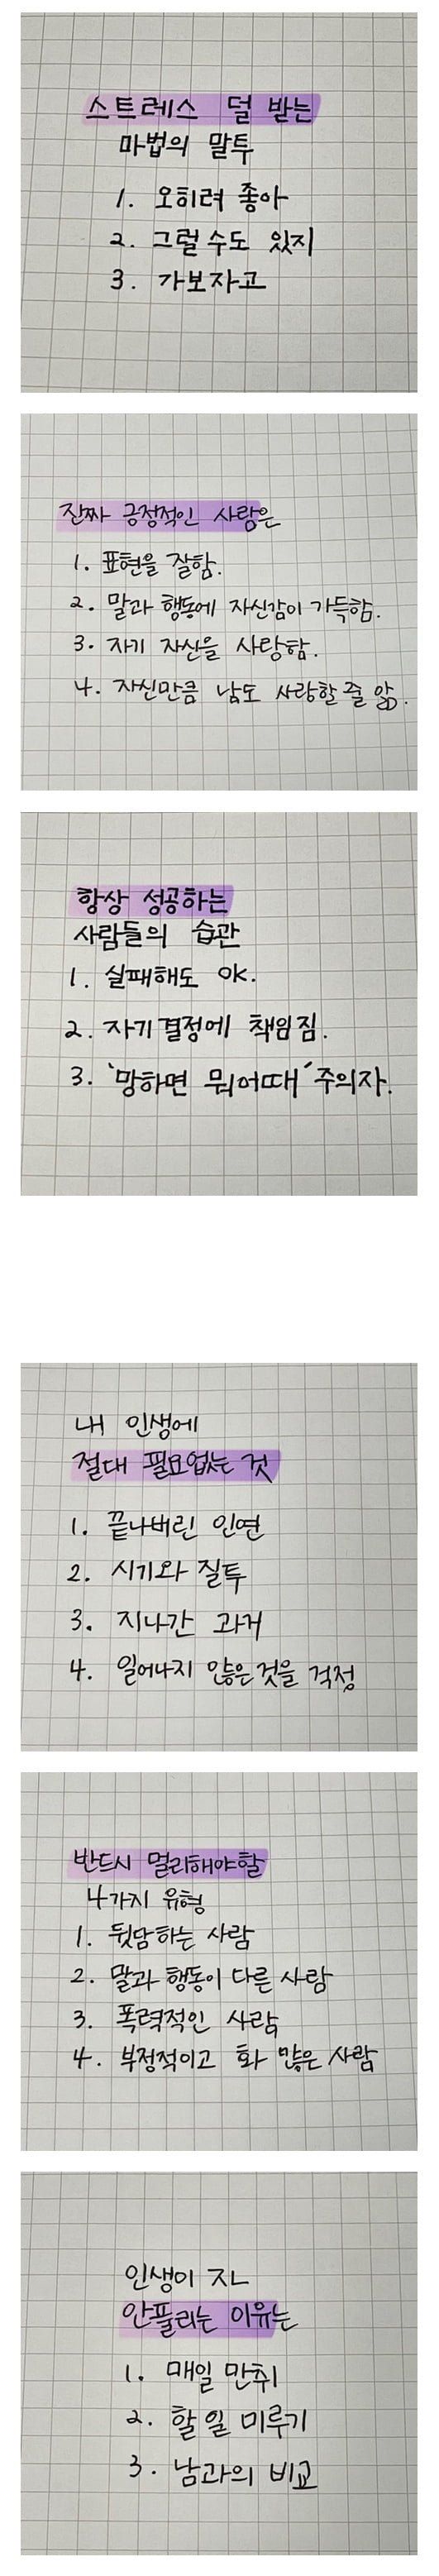 스트레스 덜 받는
마법의 말투
1. 오히려 좋아
2. 그럴 수도 있지
3. 가보자고
진짜 긍정적인 사람은
1. 표현을 잘함.
2. 말과 행동에 자신감이 가득함.
3. 자기 자신을 사랑함.
4. 자신만큼 남도 사랑할 줄 앎.
항상 성공하는
사람들의 습관
1. 실패해도 OK.
2. 자기 결정에 책임짐.
3. '망하면 뭐어때' 주의자.
내 인생에
절대 필요없는 것
1. 끝나버린 인연
2. 시기와 질투
3. 지나간 과거
4. 일어나지 않은 것을 걱정
반드시 멀리해야할
4가지 유형
1. 뒷담하는 사람
2. 말과 행동이 다른 사람
3. 폭력적인 사람
4. 부정적이고 화 많은 사람
인생이 ㅈㄴ
안풀리는 이유는
1. 매일 만취
2. 할 일 미루기
3. 남과의 비교